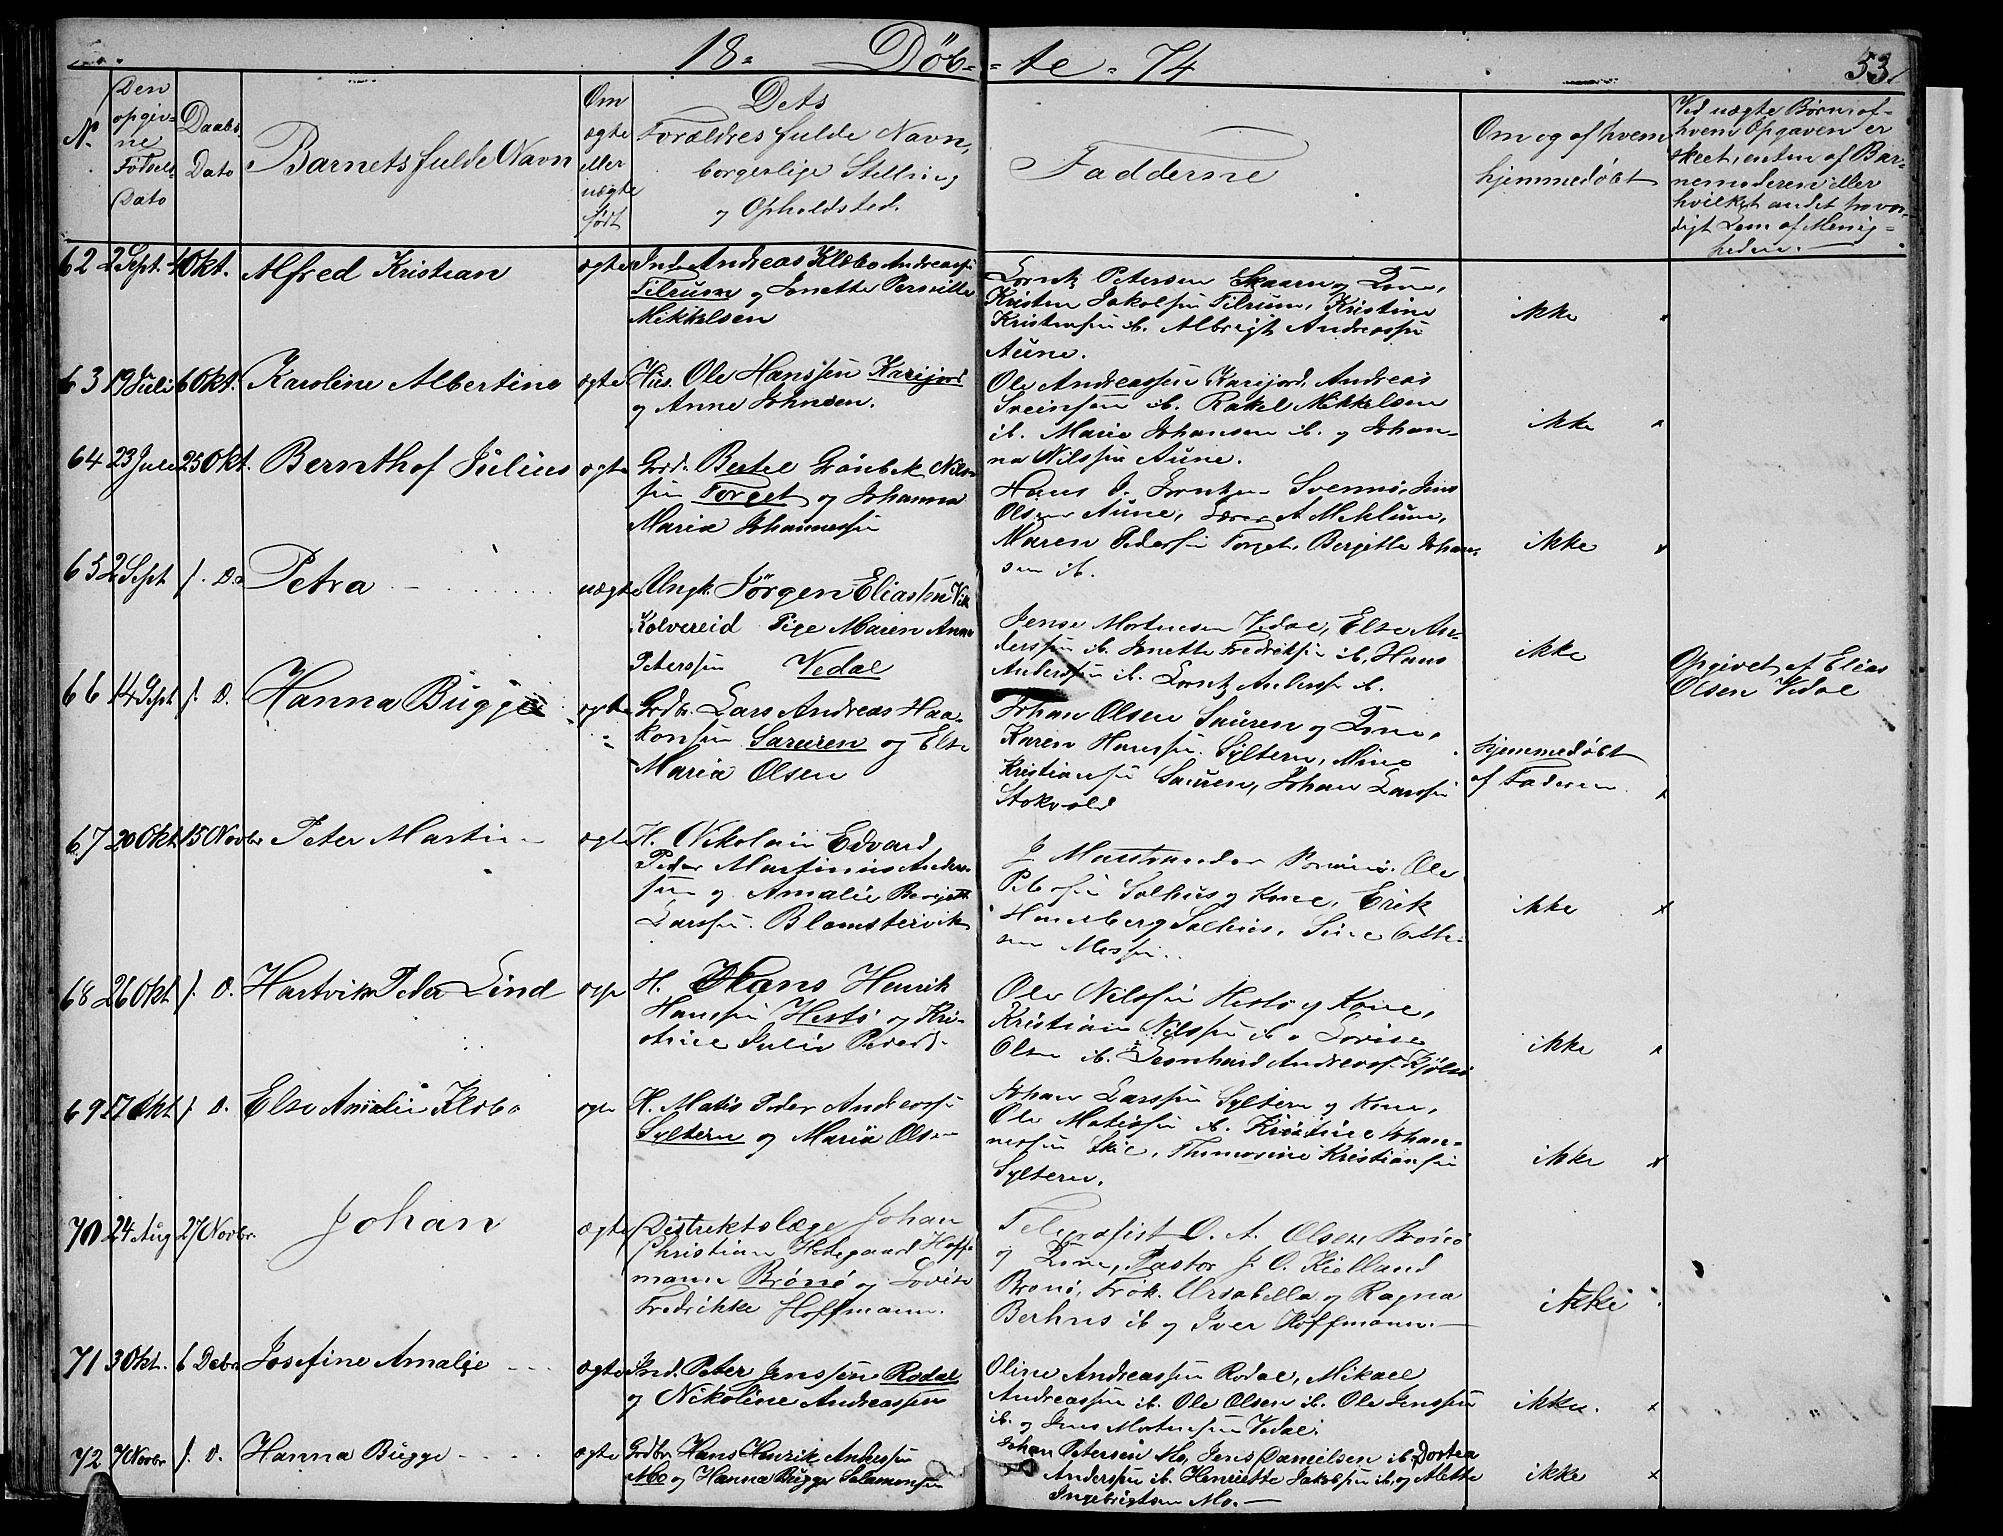 18 Døb- te 74 53
N. Den opgivne Fødsels Dato
Daabs Dato
Barnets fulde Navn
Om ægte eller uægte født
Dets Forældres fulde Navn, borgerlige Stilling og Opholdsted.
Fadderne
Om og af hvem hjemmedøbt
Ved uægte Børn af hvem Opgaven er skeet, enten af Barnemoderen eller hvilket andet trovordigt Lem af Menigheden.
62 2 Sept. 4 Okt. Alfred Kristian ægte Inds. Andreas Klæbo Andreassen
Tilrum og Jonette Pernille
Mikkelsen
Lorntz Petersen Skaaren og Kone,
Kristen Jakobsen Tilrum, Kristine
Kristensen ib. Albrigt Andreassen
Aune.
ikke
63 19 Juli 6 Okt. Karoline Albertine ægte Hus. Ole Hanssen Karijord
og Anne Johnsen.
Ole Andreassen Karijord, Andreas
Sveinsen ib. Rakel Mikkelsen
ib. Marie Johansen ib. og Johan-
na Nilssen Aune.
ikke
64 23 Juli 25 Okt. Bernthof Julius ægte Grd. Bertel Grönbek Nils-
sen Torget og Johanna
Maria Johannessen
Hans J. Lorntzen Svennö, Jens
Olsen Aune, Lærer A Meklum,
Maren Pedersen Torget, Bergitte Johan-
sen ib.
ikke
65 2 Sept f. D. Petra uægte Ungk. Jörgen Eliassen Vik
Kolvereid Pige Maren Anna
Peterssen Vedal
Jens Mortensen Vedal, Else An-
derssen ib. Jonette Fredriksen ib. Hans
Anderssen ib. Lorntz Anderssen ib.
ikke
Opgivet af Elias
Olsen Vedal
66 14 Sept f. D. Hanna Bugge ægte Grdbr. Lars Andreas Haa-
konsen Sauren og Else
Maria Olsen
Johan Olsen Sauren og Kone,
Karen Hanssen Sÿltern, Mine
Kristiansen Sauren, Johan Larssen
Stokvold
hjemmedøbt
af Faderen
67 20 Okt 15 Novbr Peter Martin ægte H. Nikolai Edvard
Peder Martinius Anders-
sen og Amalie Bergitte
Larssen Blomstervik
Ole
Peterssen Salhus og Kone, Erik
Salhus,
ikke
68 26 Okt f. D. Hartvik Peder Lind ægte H. Hans Henrik
Hanssen Hestö og Kri-
stine Julie Peders-
Ole Nilssen Hestö og Kone,
Kristian Nilssen ib. Lovise
Olsen ib. Leonhard Andreassen Kjölsö
ikke
69 17 Okt f. D. Else Amalie Klæbo ægte H. Matis Peder Andreassen
Syltern og Maria Olsen
Johan Larssen Syltern og Kone,
Ole Matissen ib. Kristine Johan-
nessen Skie, Thomasine Kristiansen
Syltern.
ikke
70 24 Aug 27 Novbr. Johan ægte Distriktslæge Johan
Christian Hedegaard Hoff-
mann Brönö og Lovise
Fredrikke Hoffmann.
Telegrafist O. A. Olsen Brönö
og Kone, Pastor J. O. Kielland
Brönö, Frøk. Ursabella og Ragna
Berhus ib og Iver Hoffmann.
ikke
71 3 Okt. 6 Debr. Josefine Amalie ægte Ind. Peter Jenssen Rodal
og Nikoline Andreassen
Oline Andreassen Rodal, Mikael
Andreassen ib. Ole Olsen ib. Ole Jenssen
ib. og Jens Mortensen Vedal.
ikke.
72 7 Novbr f. D. Hanna Bugge ægte Grdbr. Hans Henrik Anderssen
Moe og Hanna Bugge Salamonsen
Johan Petersen Mo, Jens Danielsen ib. Dortea
Anderssen ib. Henriette Jakobsen ib. og Alette
Ingebrigtsen Mo.
ikke